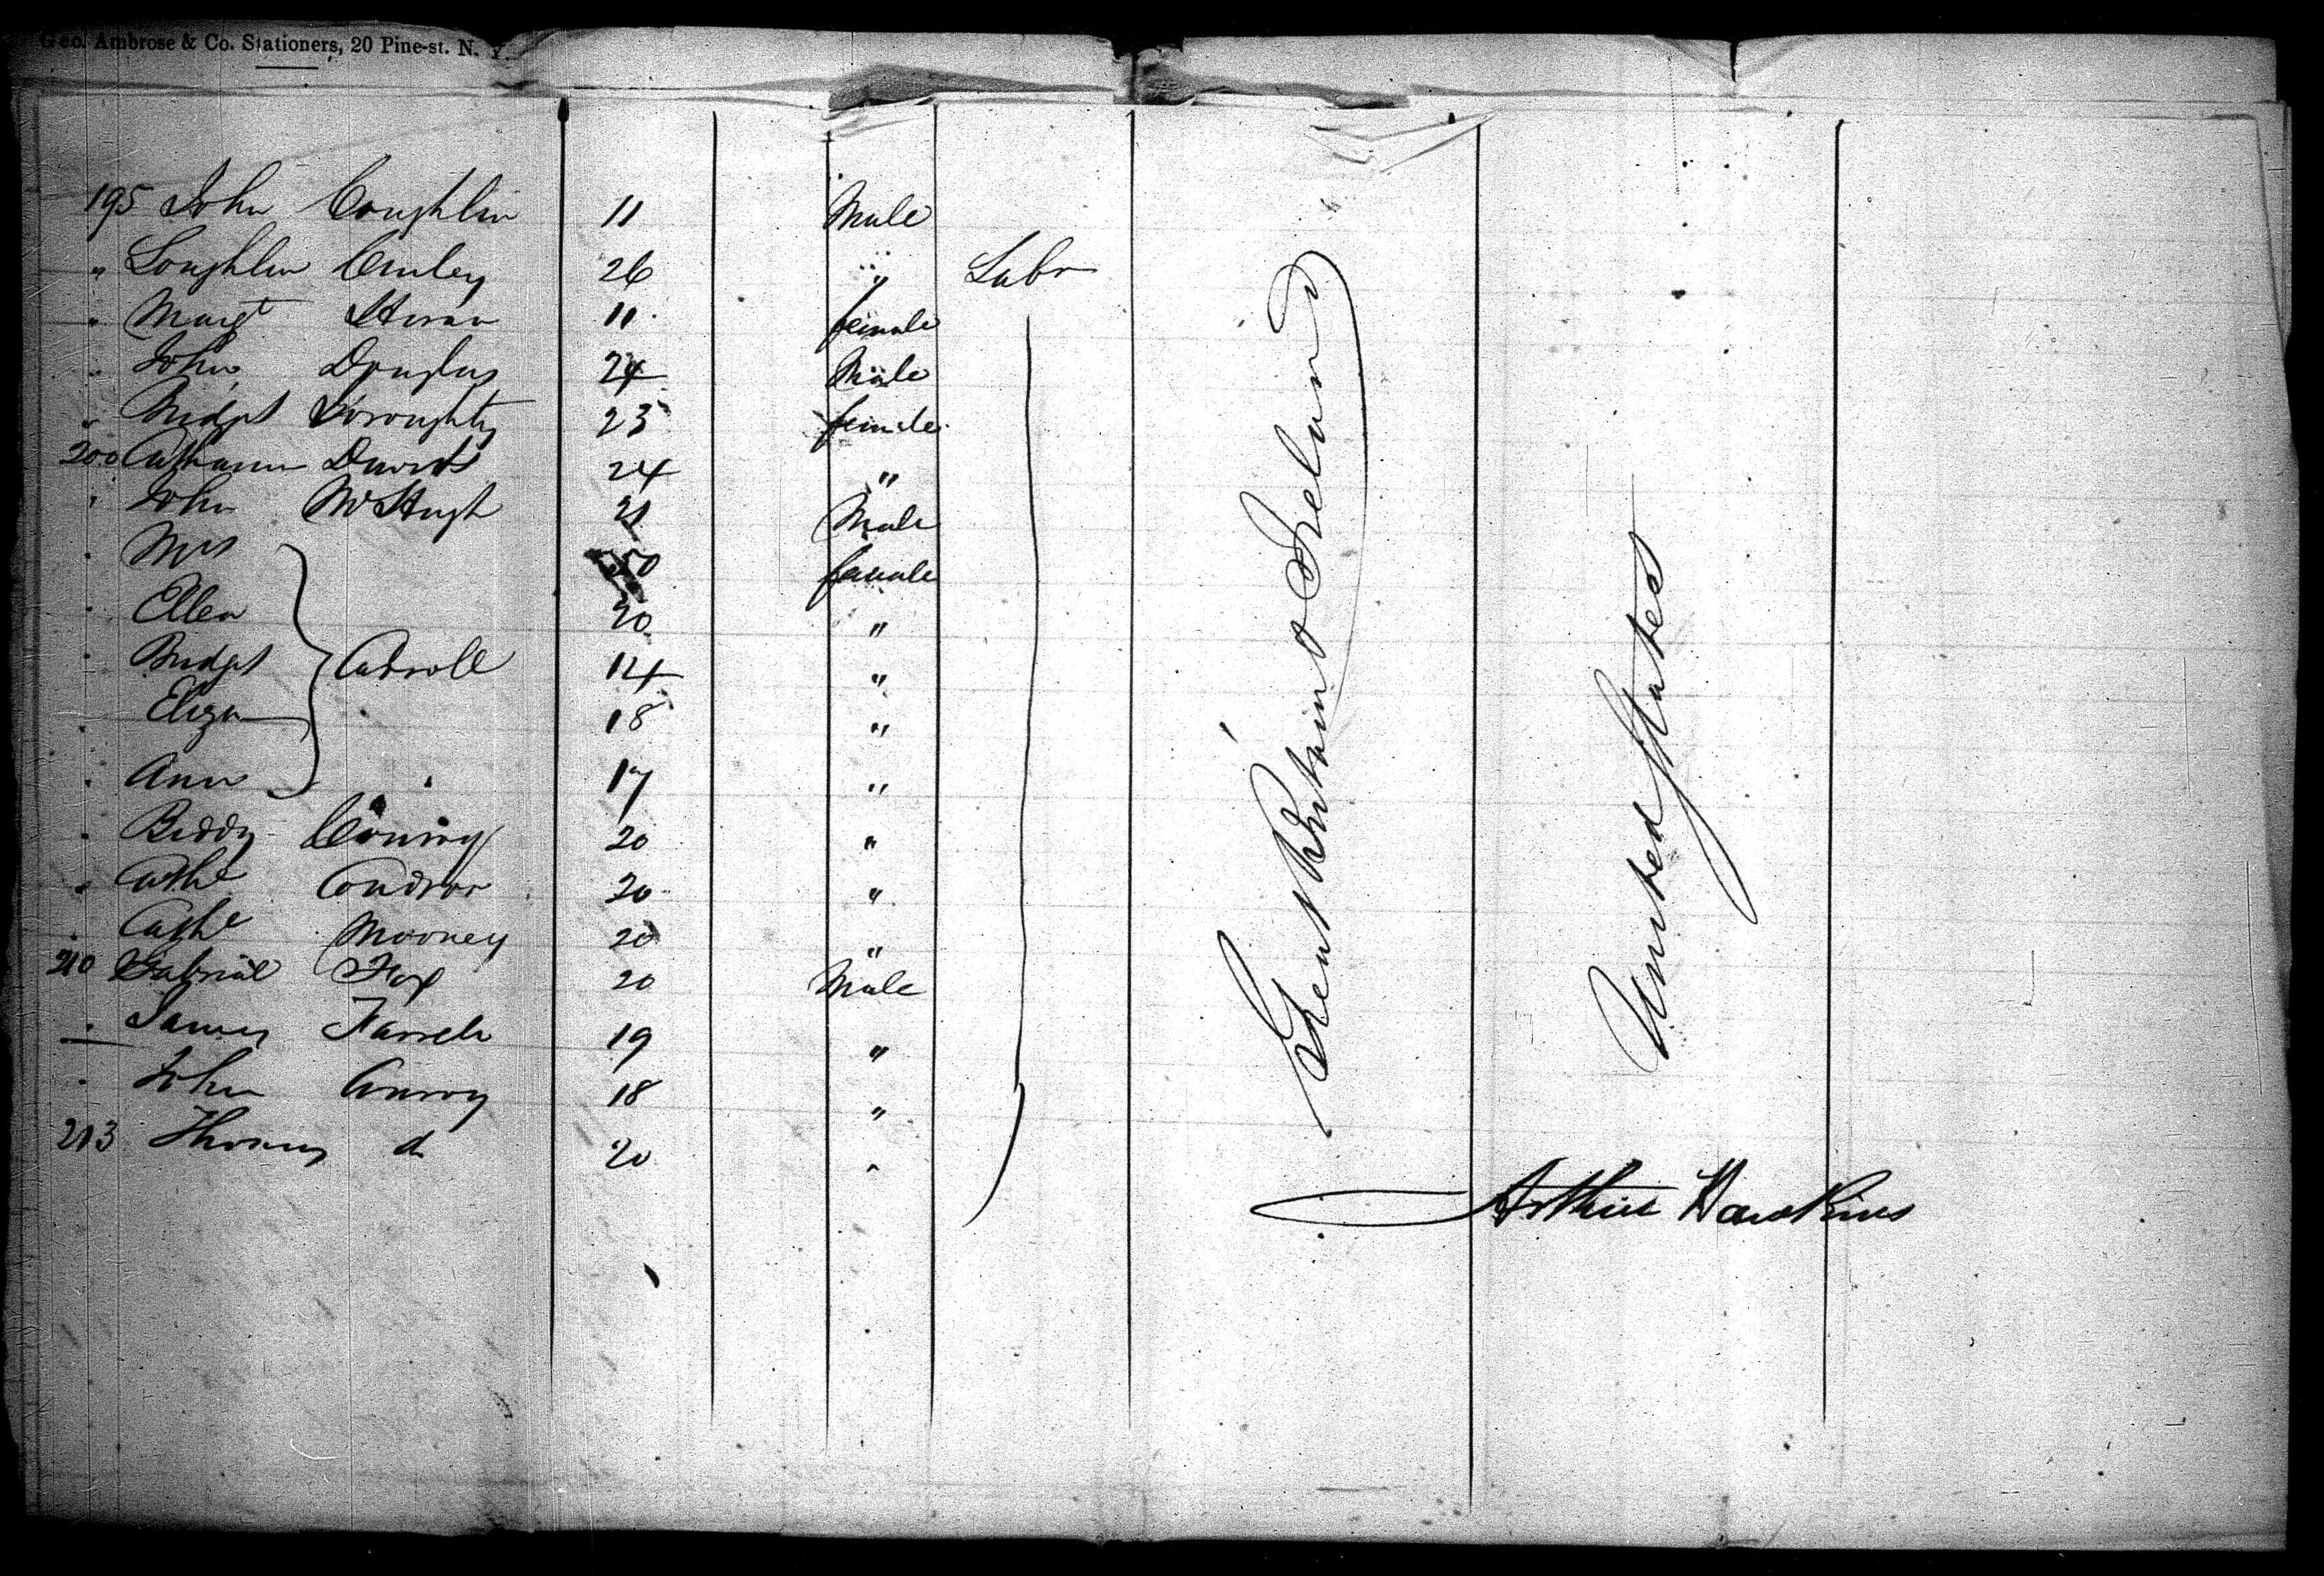 Geo. Ambrose & Co. Stationers, 20 Pine-st. N. Y.
195 John Coughlin 11 Male
" Loughlin Conley 26 " Labr
" Margt Horan 11 female
" John Douglas 24 Male
" Bridget 23 female
200 Catharine 24 "
" John McHugh 21 Male
" Mrs 50 female
" Ellen 20 "
" Bridget Carroll 14 "
" Eliza 18 "
" Ann 17 "
" Biddy Conroy 20 "
" Cathe 20 "
" Cathe Mooney 20 "
210 Gabriel Fox 20 Male
" James Farrell 19 "
" John Conroy 18 "
213 Thomas do 20 "
Great Britain & Ireland
United States
Arthur Hawkins